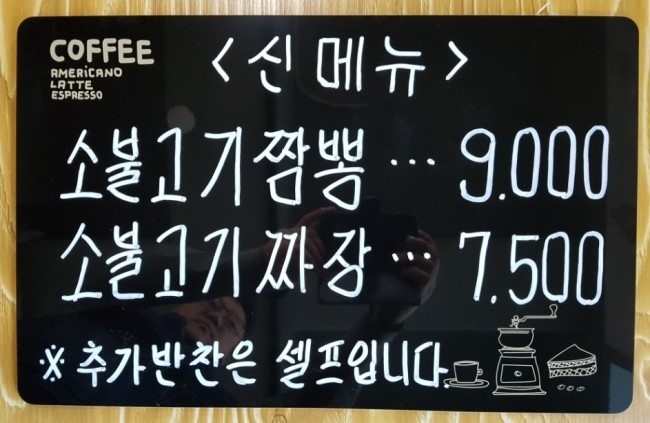 COFFEE
AMERICANO
LATTE
ESPRESSO
<신메뉴>
소불고기짬뽕 ··· 9.000
소불고기짜장 ··· 7.500
※ 추가반찬은 셀프입니다.